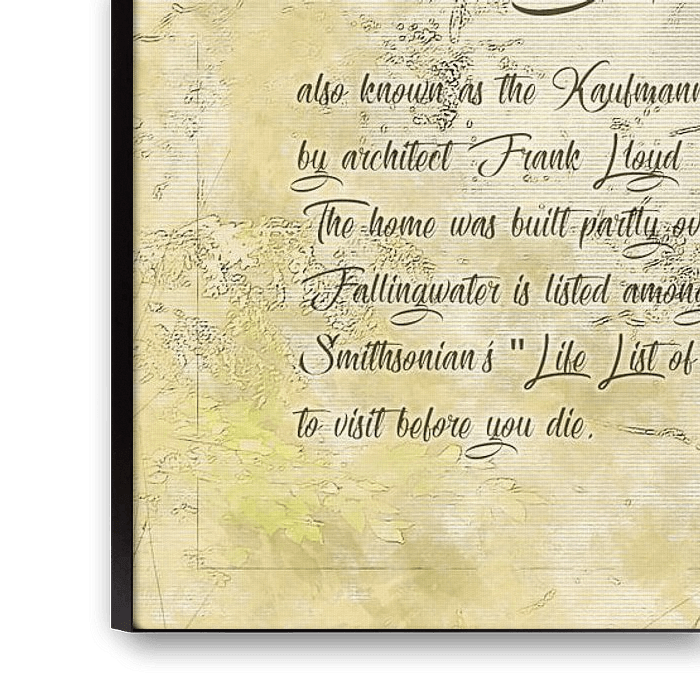 also known as the Kaufmann
by architect Frank Lloyd
The home was built partly
Fallingwater is listed among
Smithsonian's "Life List of
to visit before you die.